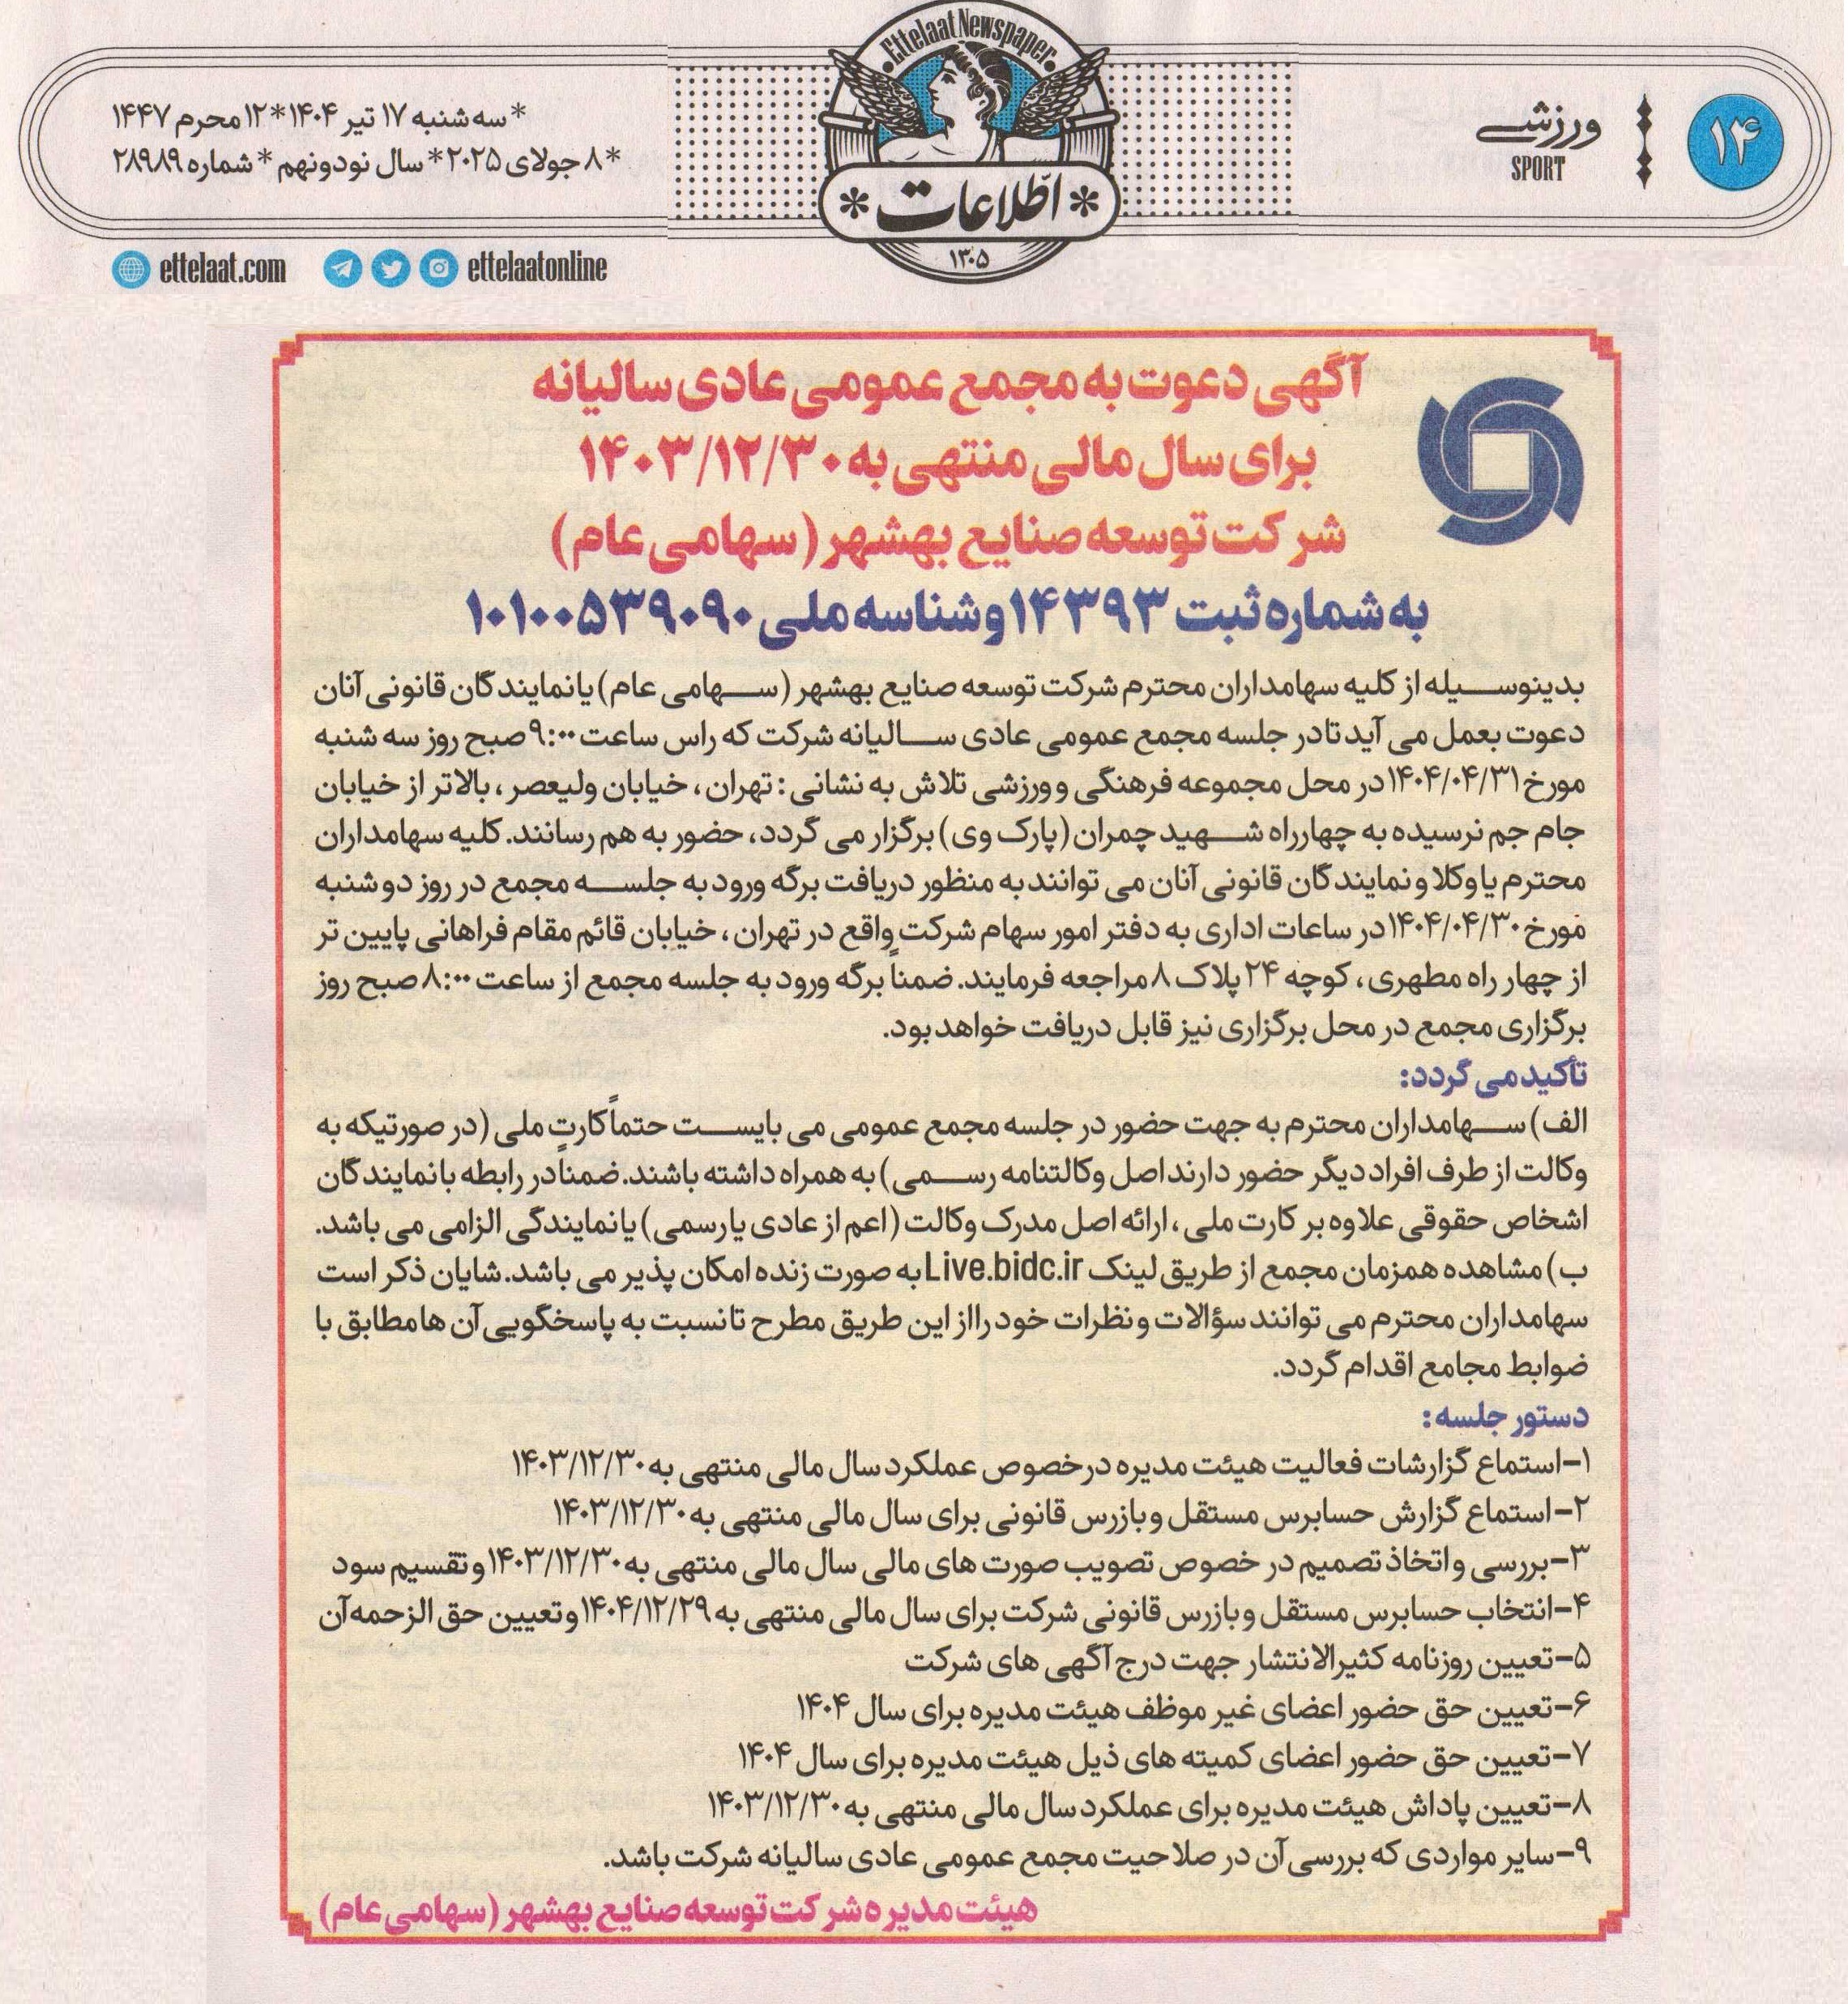 ۱۴
ورزشی
SPORT
Ettelaat Newspaper
اطّلاعات
۱۳۰۵
* سه شنبه ۱۷ تیر ۱۴۰۴ * ۱۲ محرم ۱۴۴۷
* ۸ جولای ۲۰۲۵ * سال نودونهم * شماره ۲۸۹۸۹
ettelaat.com ettelaatonline
آگهی دعوت به مجمع عمومی عادی سالیانه
برای سال مالی منتهی به ۱۴۰۳/۱۲/۳۰
شرکت توسعه صنایع بهشهر (سهامی عام)
به شماره ثبت ۱۴۳۹۳ و شناسه ملی ۱۰۱۰۰۵۳۹۰۹۰
بدینوسیله از کلیه سهامداران محترم شرکت توسعه صنایع بهشهر (سهامی عام) یا نمایندگان قانونی آنان
دعوت بعمل می آید تا در جلسه مجمع عمومی عادی سالیانه شرکت که راس ساعت ۹:۰۰ صبح روز سه شنبه
مورخ ۱۴۰۴/۰۴/۳۱ در محل مجموعه فرهنگی و ورزشی تلاش به نشانی : تهران، خیابان ولیعصر، بالاتر از خیابان
جام جم نرسیده به چهارراه شهید چمران (پارک وی) برگزار می گردد، حضور به هم رسانند. کلیه سهامداران
محترم یا وکلا و نمایندگان قانونی آنان می توانند به منظور دریافت برگه ورود به جلسه مجمع در روز دوشنبه
مورخ ۱۴۰۴/۰۴/۳۰ در ساعات اداری به دفتر امور سهام شرکت واقع در تهران، خیابان قائم مقام فراهانی پایین تر
از چهار راه مطهری، کوچه ۲۴ پلاک ۸ مراجعه فرمایند. ضمناً برگه ورود به جلسه مجمع از ساعت ۸:۰۰ صبح روز
برگزاری مجمع در محل برگزاری نیز قابل دریافت خواهد بود.
تأکید می گردد:
الف) سهامداران محترم به جهت حضور در جلسه مجمع عمومی می بایست حتماً کارت ملی (در صورتیکه به
وکالت از طرف افراد دیگر حضور دارند اصل وکالتنامه رسمی) به همراه داشته باشند. ضمناً در رابطه با نمایندگان
اشخاص حقوقی علاوه بر کارت ملی، ارائه اصل مدرک وکالت (اعم از عادی یا رسمی) یا نمایندگی الزامی می باشد.
ب) مشاهده همزمان مجمع از طریق لینک Live.bidc.ir به صورت زنده امکان پذیر می باشد. شایان ذکر است
سهامداران محترم می توانند سؤالات و نظرات خود را از این طریق مطرح تا نسبت به پاسخگویی آن ها مطابق با
ضوابط مجامع اقدام گردد.
دستور جلسه:
۱- استماع گزارشات فعالیت هیئت مدیره در خصوص عملکرد سال مالی منتهی به ۱۴۰۳/۱۲/۳۰
۲- استماع گزارش حسابرس مستقل و بازرس قانونی برای سال مالی منتهی به ۱۴۰۳/۱۲/۳۰
۳- بررسی و اتخاذ تصمیم در خصوص تصویب صورت های مالی سال مالی منتهی به ۱۴۰۳/۱۲/۳۰ و تقسیم سود
۴- انتخاب حسابرس مستقل و بازرس قانونی شرکت برای سال مالی منتهی به ۱۴۰۴/۱۲/۲۹ و تعیین حق الزحمه آن
۵- تعیین روزنامه کثیرالانتشار جهت درج آگهی های شرکت
۶- تعیین حق حضور اعضای غیر موظف هیئت مدیره برای سال ۱۴۰۴
۷- تعیین حق حضور اعضای کمیته های ذیل هیئت مدیره برای سال ۱۴۰۴
۸- تعیین پاداش هیئت مدیره برای عملکرد سال مالی منتهی به ۱۴۰۳/۱۲/۳۰
۹- سایر مواردی که بررسی آن در صلاحیت مجمع عمومی عادی سالیانه شرکت باشد.
هیئت مدیره شرکت توسعه صنایع بهشهر (سهامی عام)